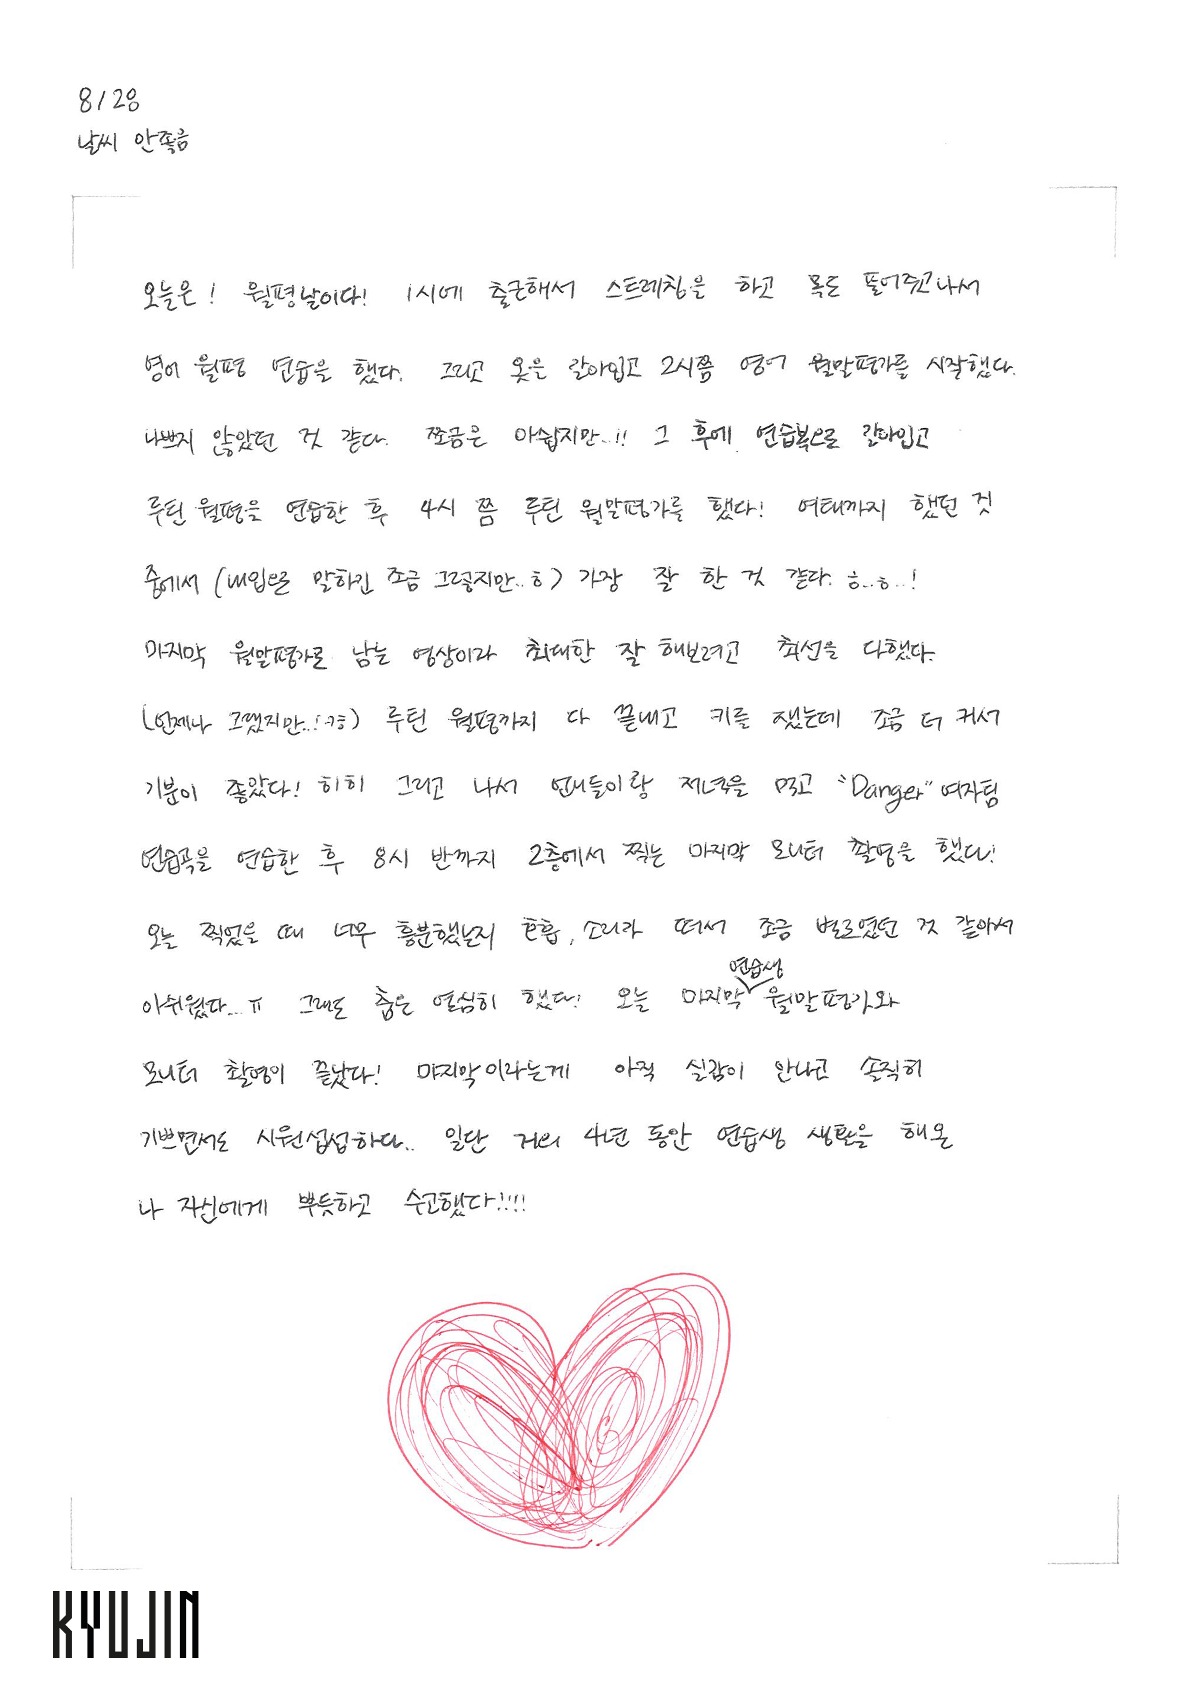 8/28
날씨 안좋음
오늘은! 월평날이다! 1시에 출근해서 스트레칭을 하고 목도 풀어주고나서
영어 월평 연습을 했다. 그리고 옷은 갈아입고 2시쯤 영어 월말평가를 시작했다.
나쁘지 않았던 것 같다. 쪼금은 아쉽지만..!! 그 후에 연습복으로 갈아입고
루틴 월평을 연습한 후 4시 쯤 루틴 월말평가를 했다! 여태까지 했던 것
중에서 (내입으로 말하긴 조금 그렇지만..ㅎ) 가장 잘 한 것 같다. ㅎ..ㅎ..!
마지막 월말평가로 남는 영상이라 최대한 잘 해보려고 최선을 다했다.
(언제나 그랬지만..!ㅋㅎ) 루틴 월평까지 다 끝내고 키를 쟀는데 조금 더 커서
기분이 좋았다! 히히 그리고 나서 언니들이랑 저녁을 먹고 "Danger" 여자팀
연습곡을 연습한 후 8시 반까지 2층에서 찍는 마지막 모니터 촬영을 했다!
오늘 찍었을 때 너무 흥분했는지 호흡, 소리가 떠서 조금 별로였던 것 같아서
아쉬웠다...ㅠ 그래도 춤은 열심히 했다! 오늘 마지막 연습생 월말평가와
모니터 촬영이 끝났다! 마지막이라는게 아직 실감이 안나고 솔직히
기쁘면서도 시원섭섭하다.. 일단 거의 4년 동안 연습생 생활을 해온
나 자신에게 뿌듯하고 수고했다!!!!
KYUJIN